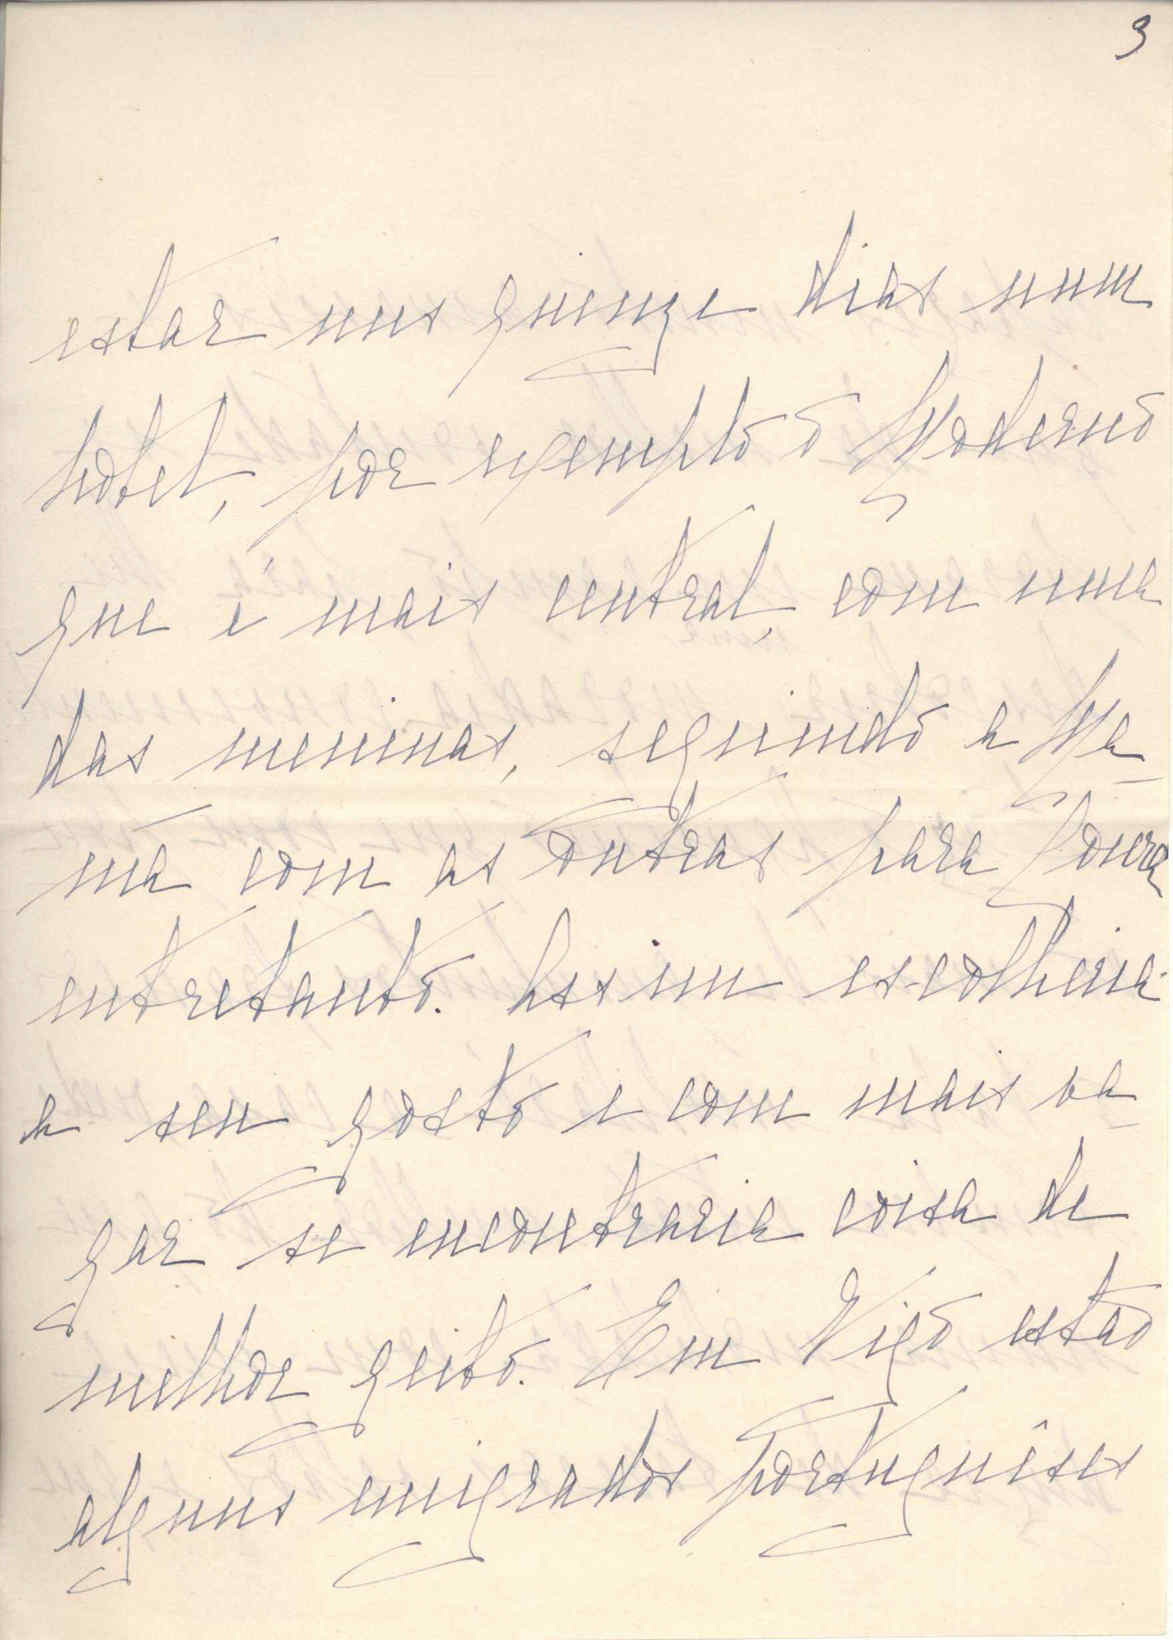 3
estar uns quinze dias num
hotel, por exemplo o Moderno
que é mais central, com uma
das meninas, seguindo a Ma-
mã com as outras para Loura
entretanto. Assim escolheria-
a seu gosto e com mais va-
gar se encontraria coisa de
melhor geito. Em Vigo estão
alguns emigrados portuguêses